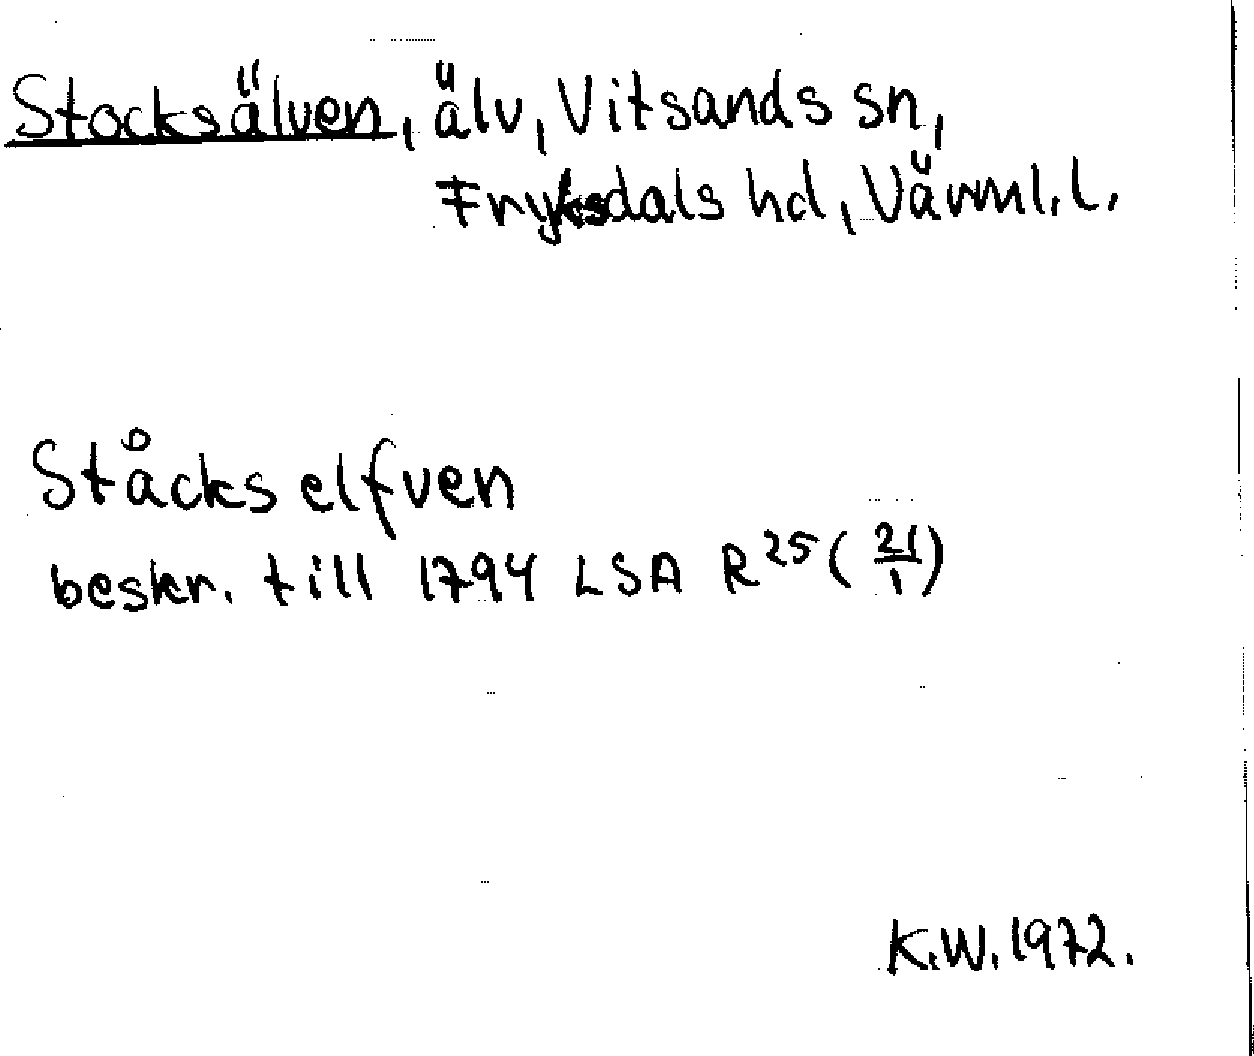 Stocksälven, älv, Vitsands sn,
Fryksdals hd, Värml. l.
Ståcks elfven
beskr. till 1794 LSA R25 (21/1)
K.W. 1972.